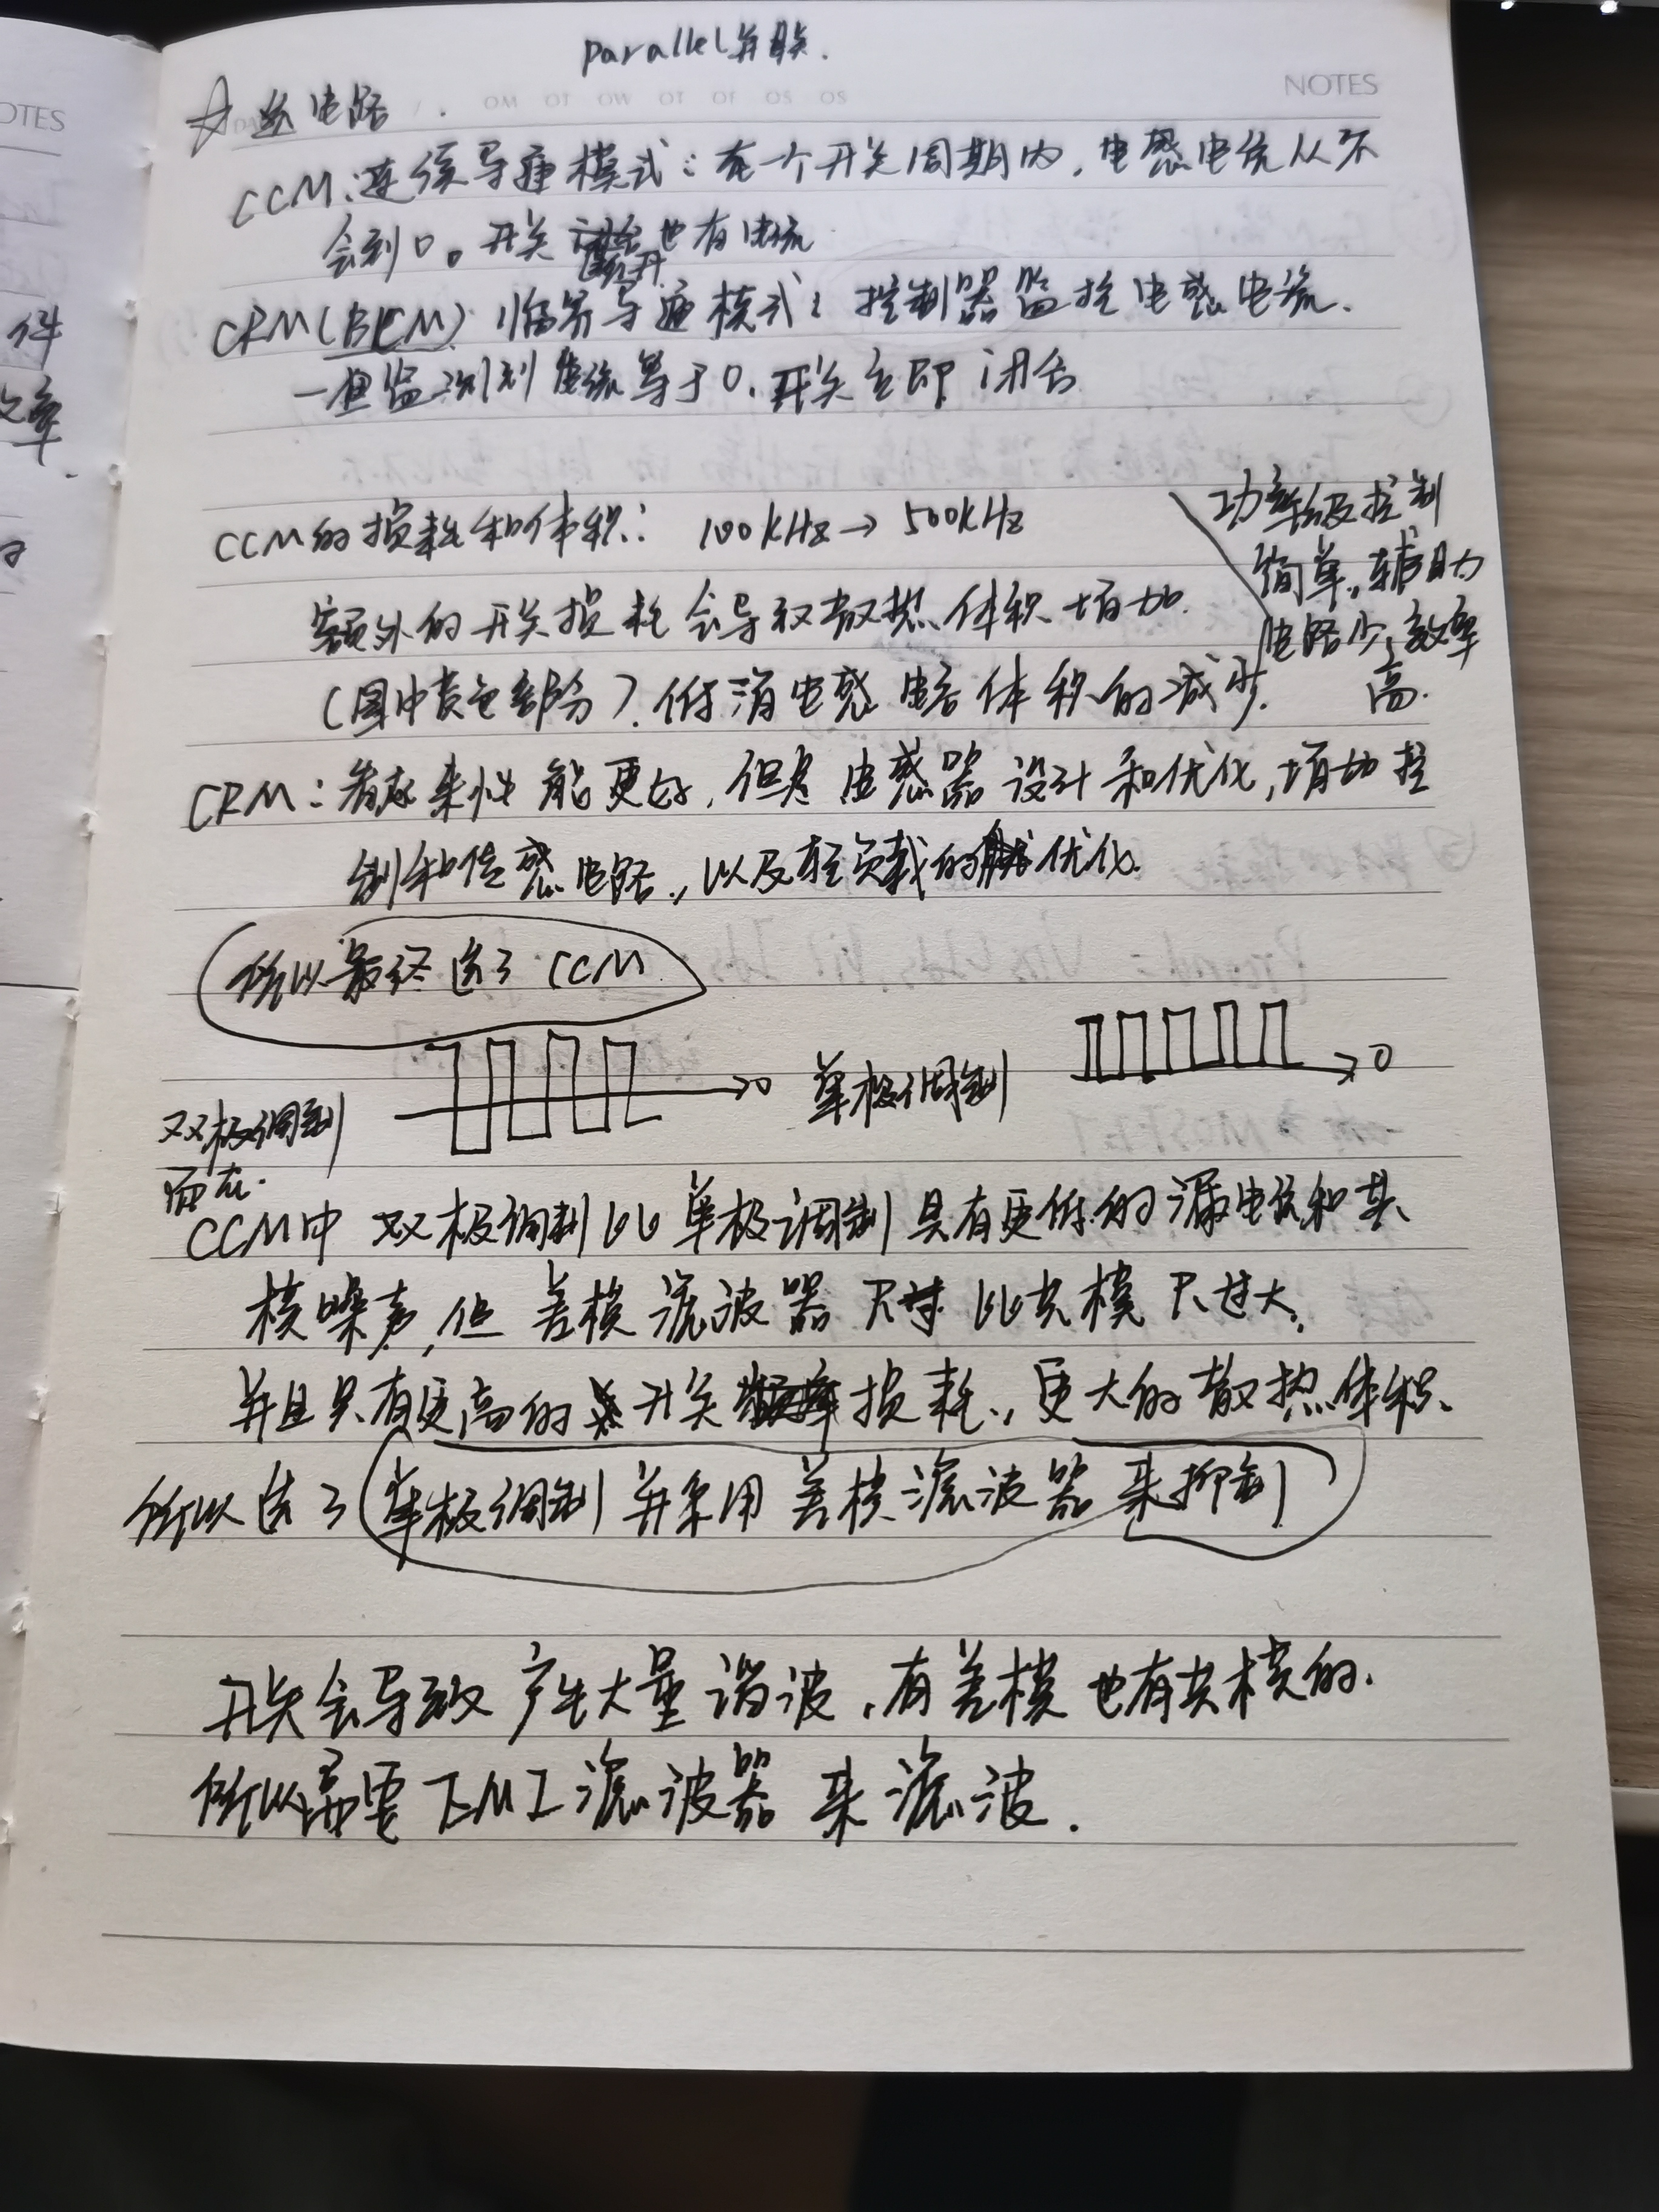 parallel 并联.
NOTES
电路
CCM:连续导通模式:在一个开关周期内,电感电流从不
会到0。开关断开也有电流
CRM(BCM) 临界导通模式:控制器监控电感电流.
一旦监测到电流等于0.开关立即闭合
CCM的损耗和体积: 100kHz→500kHz
功率级控制
简单,辅助
电路少,效率
高.
额外的开关损耗会导致散热体积增加.
(图中黄色部分).低消电感电容体积的减少.
CRM:看起来性能更好,但是电感器设计和优化,增加控
制和传感电路,以及轻负载的优化.
所以最终选了CCM
双极调制
0
单极调制
0
而在.
CCM中 双极调制比单极调制具有更低的漏电流和共
模噪声,但差模滤波器尺寸比共模尺寸大,
并且具有更高的开关损耗,更大的散热体积.
所以选了单极调制并采用差模滤波器来抑制
开关会导致产生大量谐波,有差模也有共模的.
所以需要EMI滤波器来滤波.
OTES
件
率.